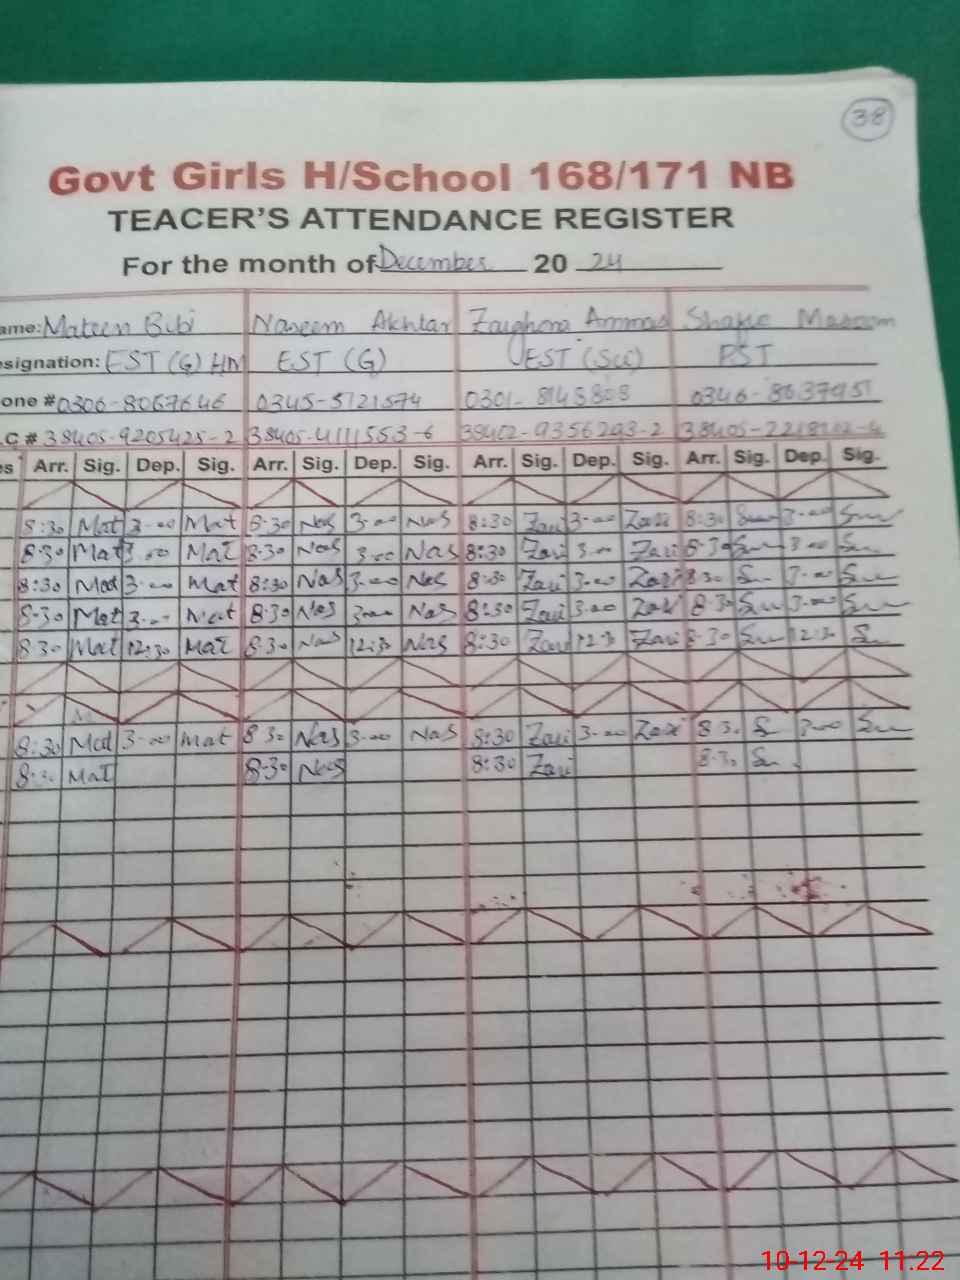 38
Govt Girls H/School 168/171 NB
TEACER'S ATTENDANCE REGISTER
For the month of December 20 24
ame: Mateen Bibi Naseem Akhtar Zaighona Ammad Shafie Masoom
esignation: EST (G) HM EST (G) EST (Sci) PST
one # 0306-8067646 0345-5121574 0301-8145808 0346-8637951
.C # 38405-9205425-2 38405-4111553-6 38402-9356293-2 38405-2218202-4
es Arr. Sig. Dep. Sig. Arr. Sig. Dep. Sig. Arr. Sig. Dep. Sig. Arr. Sig. Dep. Sig.
8:30 Mat 3-00 Mat 8-30 Nas 3-00 Nas 8:30 Zavi 3-00 Zavi 8:30 3-00
8:30 Mat 3-00 Mat 8-30 Nas 3-00 Nas 8:30 Zavi 3-00 Zavi 8-30 3-00
8:30 Mat 3-00 Mat 8:30 Nas 3-00 Nas 8:30 Zavi 3-00 Zavi 8:30 3-00
8-30 Mat 3-00 Mat 8:30 Nas 3-00 Nas 8:30 Zavi 3-00 Zavi 8-30 3-00
8:30 Mat 12:30 Mat 8-30 Nas 12:30 Nas 8:30 Zavi 12:30 Zavi 8-30 12:30
8:30 Mat 3-00 Mat 8 30 Nas 3-00 Nas 8:30 Zavi 3-00 Zavi 8 30 3-00
8:30 Mat 8-30 Nas 8:30 Zavi 8-30
10-12-24 11.22